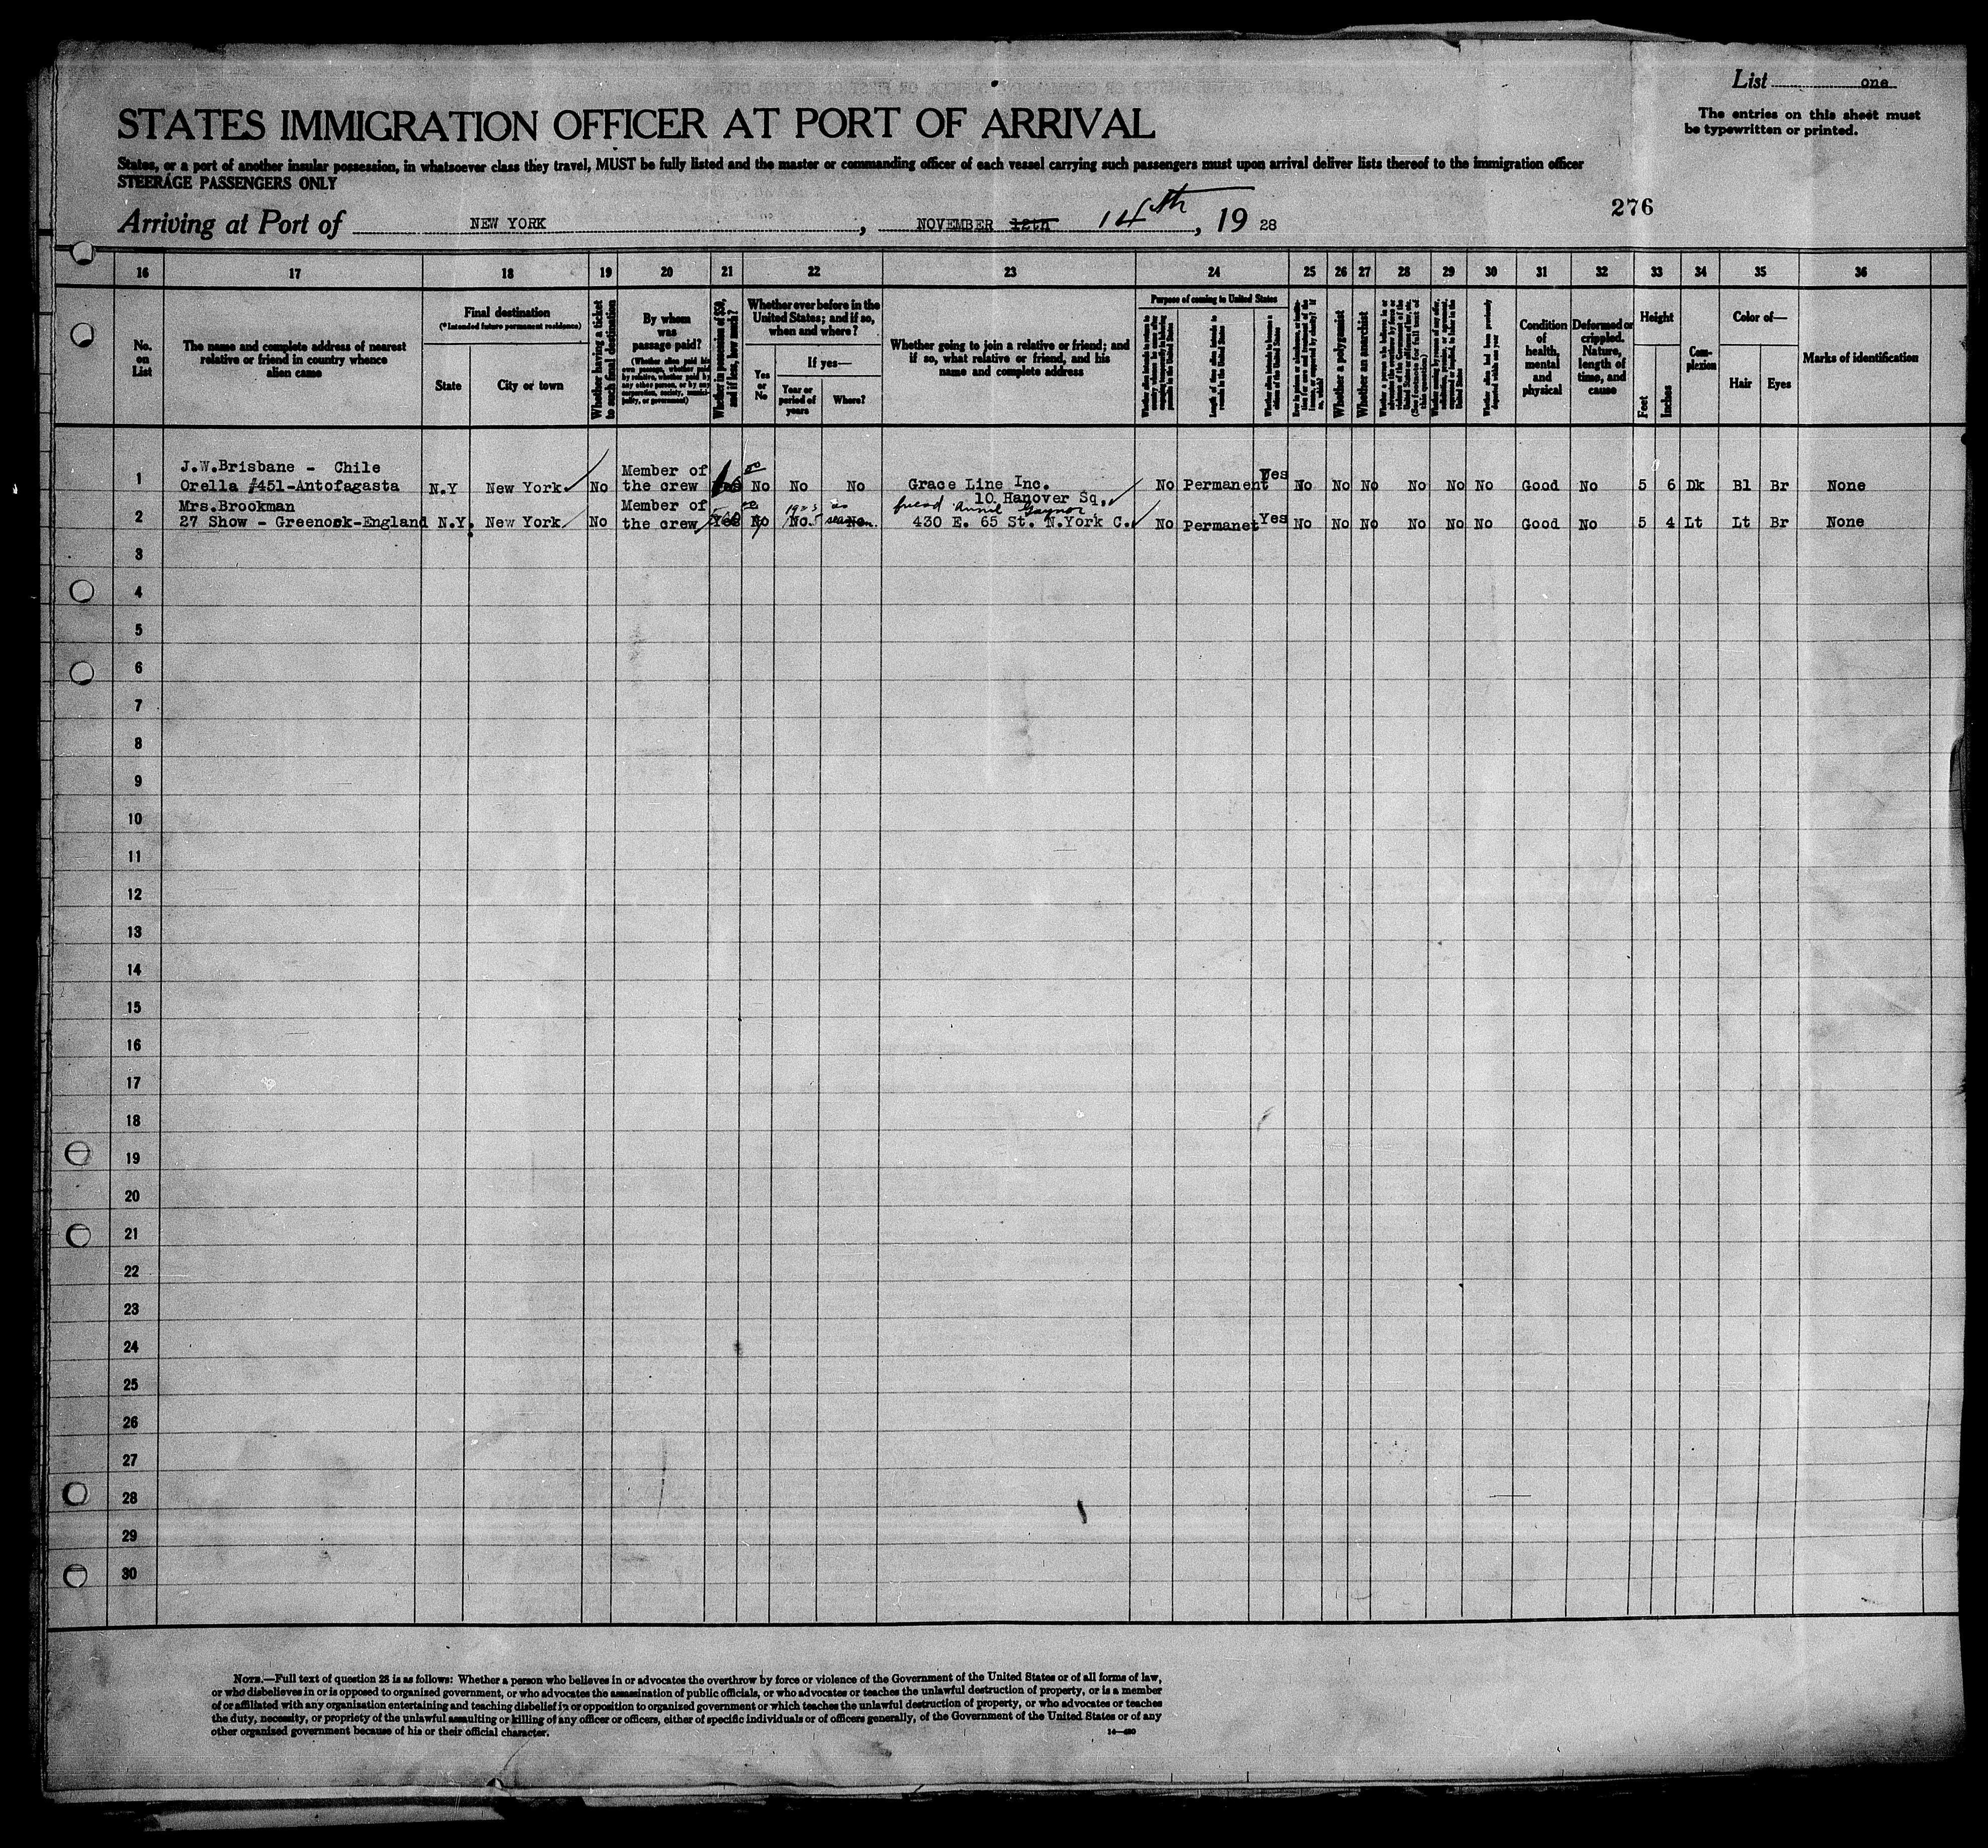 List one
The entries on this sheet must
be typewritten or printed.
STATES IMMIGRATION OFFICER AT PORT OF ARRIVAL
States, or a port of another insular possession, in whatsoever class they travel, MUST be fully listed and the master or commanding officer of each vessel carrying such passengers must upon arrival deliver lists thereof to the immigration officer
STEERAGE PASSENGERS ONLY
276
Arriving at Port of NEW YORK, NOVEMBER 12th 14th, 19 28
16 17 18 19 20 21 22 23 24 25 26 27 28 29 30 31 32 33 34 35 36
No.
on
List
The name and complete address of nearest
relative or friend in country whence
alien came
Final destination
(*Intended future permanent residence)
State
City or town
Whether having a ticket
to such final destination
By whom
was
passage paid?
(Whether alien paid his
own passage, whether paid
by relative, whether paid by
any other person, or by any
corporation, society, munici-
pality, or government)
Whether in possession of $50,
and if less, how much?
Whether ever before in the
United States; and if so,
when and where?
Yes
or
No
If yes—
Year or
period of
years
Where?
Whether going to join a relative or friend; and
if so, what relative or friend, and his
name and complete address
Purpose of coming to United States
Length of time alien intends to
remain in the United States
Whether alien intends to become a
citizen of the United States
Whether a polygamist
Whether an anarchist
Whether alien had been previously
deported within one year
Condition
of
health,
mental
and
physical
Deformed or
crippled.
Nature,
length of
time, and
cause
Height
Feet
Inches
Com-
plexion
Color of—
Hair
Eyes
Marks of identification
J.W.Brisbane - Chile
1 Orella #451-Antofagasta N.Y New York No Member of
the crew No No No Grace Line Inc.
10 Hanover Sq. No Permanent Yes No No No No No No Good No 5 6 Dk Bl Br None
Mrs.Brookman
2 27 Show - Greenock-England N.Y. New York No Member of
the crew Yes No No. 1923 as seaman friend Annie Gaynor
430 E. 65 St. N.York C. No Permanet Yes No No No No No No Good No 5 4 Lt Lt Br None
3
4
5
6
7
8
9
10
11
12
13
14
15
16
17
18
19
20
21
22
23
24
25
26
27
28
29
30
NOTE.—Full text of question 28 is as follows: Whether a person who believes in or advocates the overthrow by force or violence of the Government of the United States or of all forms of law,
or who disbelieves in or is opposed to organized government, or who advocates the assassination of public officials, or who advocates or teaches the unlawful destruction of property, or is a member
of or affiliated with any organization entertaining and teaching disbelief in or opposition to organized government or which teaches the unlawful destruction of property, or who advocates or teaches
the duty, necessity, or propriety of the unlawful assaulting or killing of any officer or officers, either of specific individuals or of officers generally, of the Government of the United States or of any
other organized government because of his or their official character.
14—430